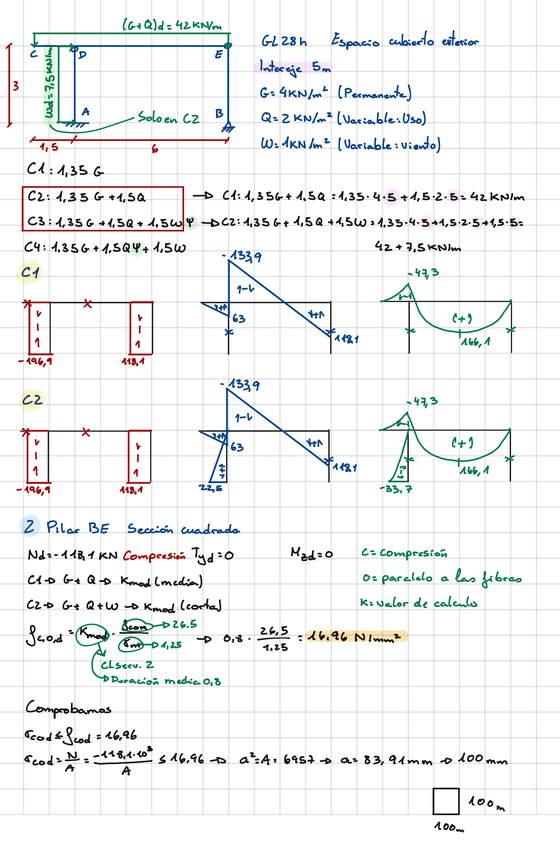 (G+Q)d = 42KN/m
C
D
E
Wd = 7,5 KN/m
A
B
3
Solo en C2
1,5
6
GL28h Espacio cubierto exterior
Intereje 5m
G = 4KN/m² (Permanente)
Q = 2 KN/m² (Variable: Uso)
W = 1KN/m² (Variable: viento)
C1: 1,35 G
C2: 1,35 G + 1,5Q → C1: 1,35G + 1,5Q = 1,35·4·5 + 1,5·2·5 = 42 KN/m
C3: 1,35G + 1,5Q + 1,5WΨ → C2: 1,35G + 1,5Q + 1,5W = 1,35·4·5 + 1,5·2·5 + 1,5·5 =
C4: 1,35G + 1,5QΨ + 1,5W
42 + 7,5 KN/m
C1
-196,9
118,1
-133,9
(-)
(+)
63
(+)
118,1
-47,3
(-)
(+)
166,1
C2
-196,9
118,1
-133,9
(-)
(+)
63
(+)
118,1
22,5
-47,3
(-)
(+)
166,1
-33,7
2 Pilar BE Sección cuadrada
Nd = -118,1 KN Compresión Tyd = 0 Mzd = 0
C = compresión
C1 → G + Q → Kmod (media)
0 = paralelo a las fibras
C2 → G + Q + W → Kmod (corta)
K = valor de calculo
fc,0,d = Kmod · fcok → 26.5 / γm → 1,25 → 0,8 · 26,5 / 1.25 = 16,96 N/mm²
Cl. serv. 2
Duración media 0,8
Comprobamos
σcod ≤ fcod = 16,96
σcod = N/A = -118,1·10³ / A ≤ 16,96 → a² = A = 6957 → a = 83,91mm → 100 mm
100m
100m